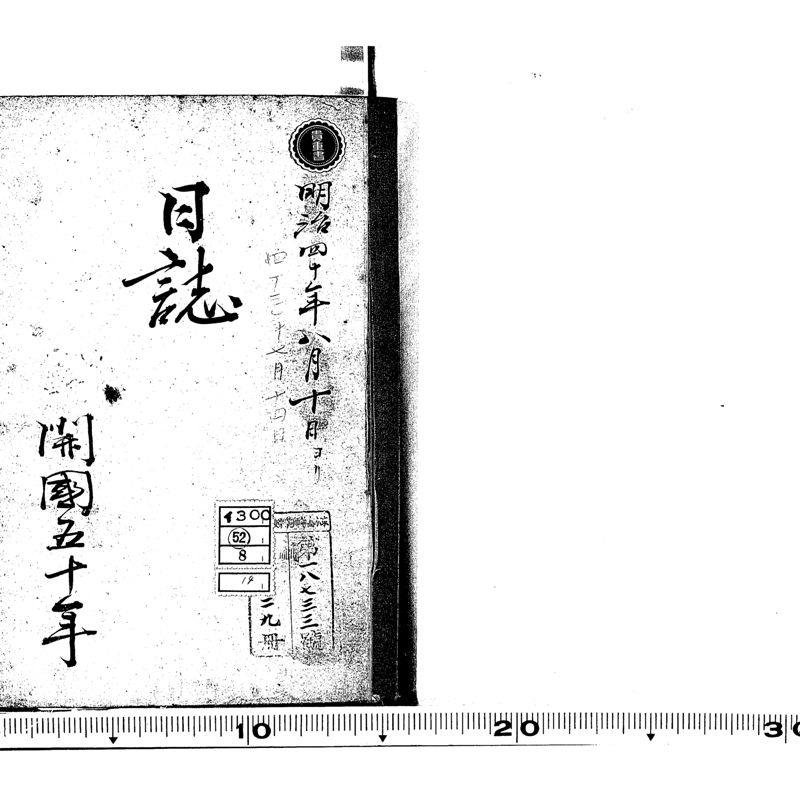 貴重書
明治四十年八月十日ヨリ
四十三年七月十四日
日誌
開國五十年
1300
52
8
14
第一八七三三號
二九冊
10
20
30